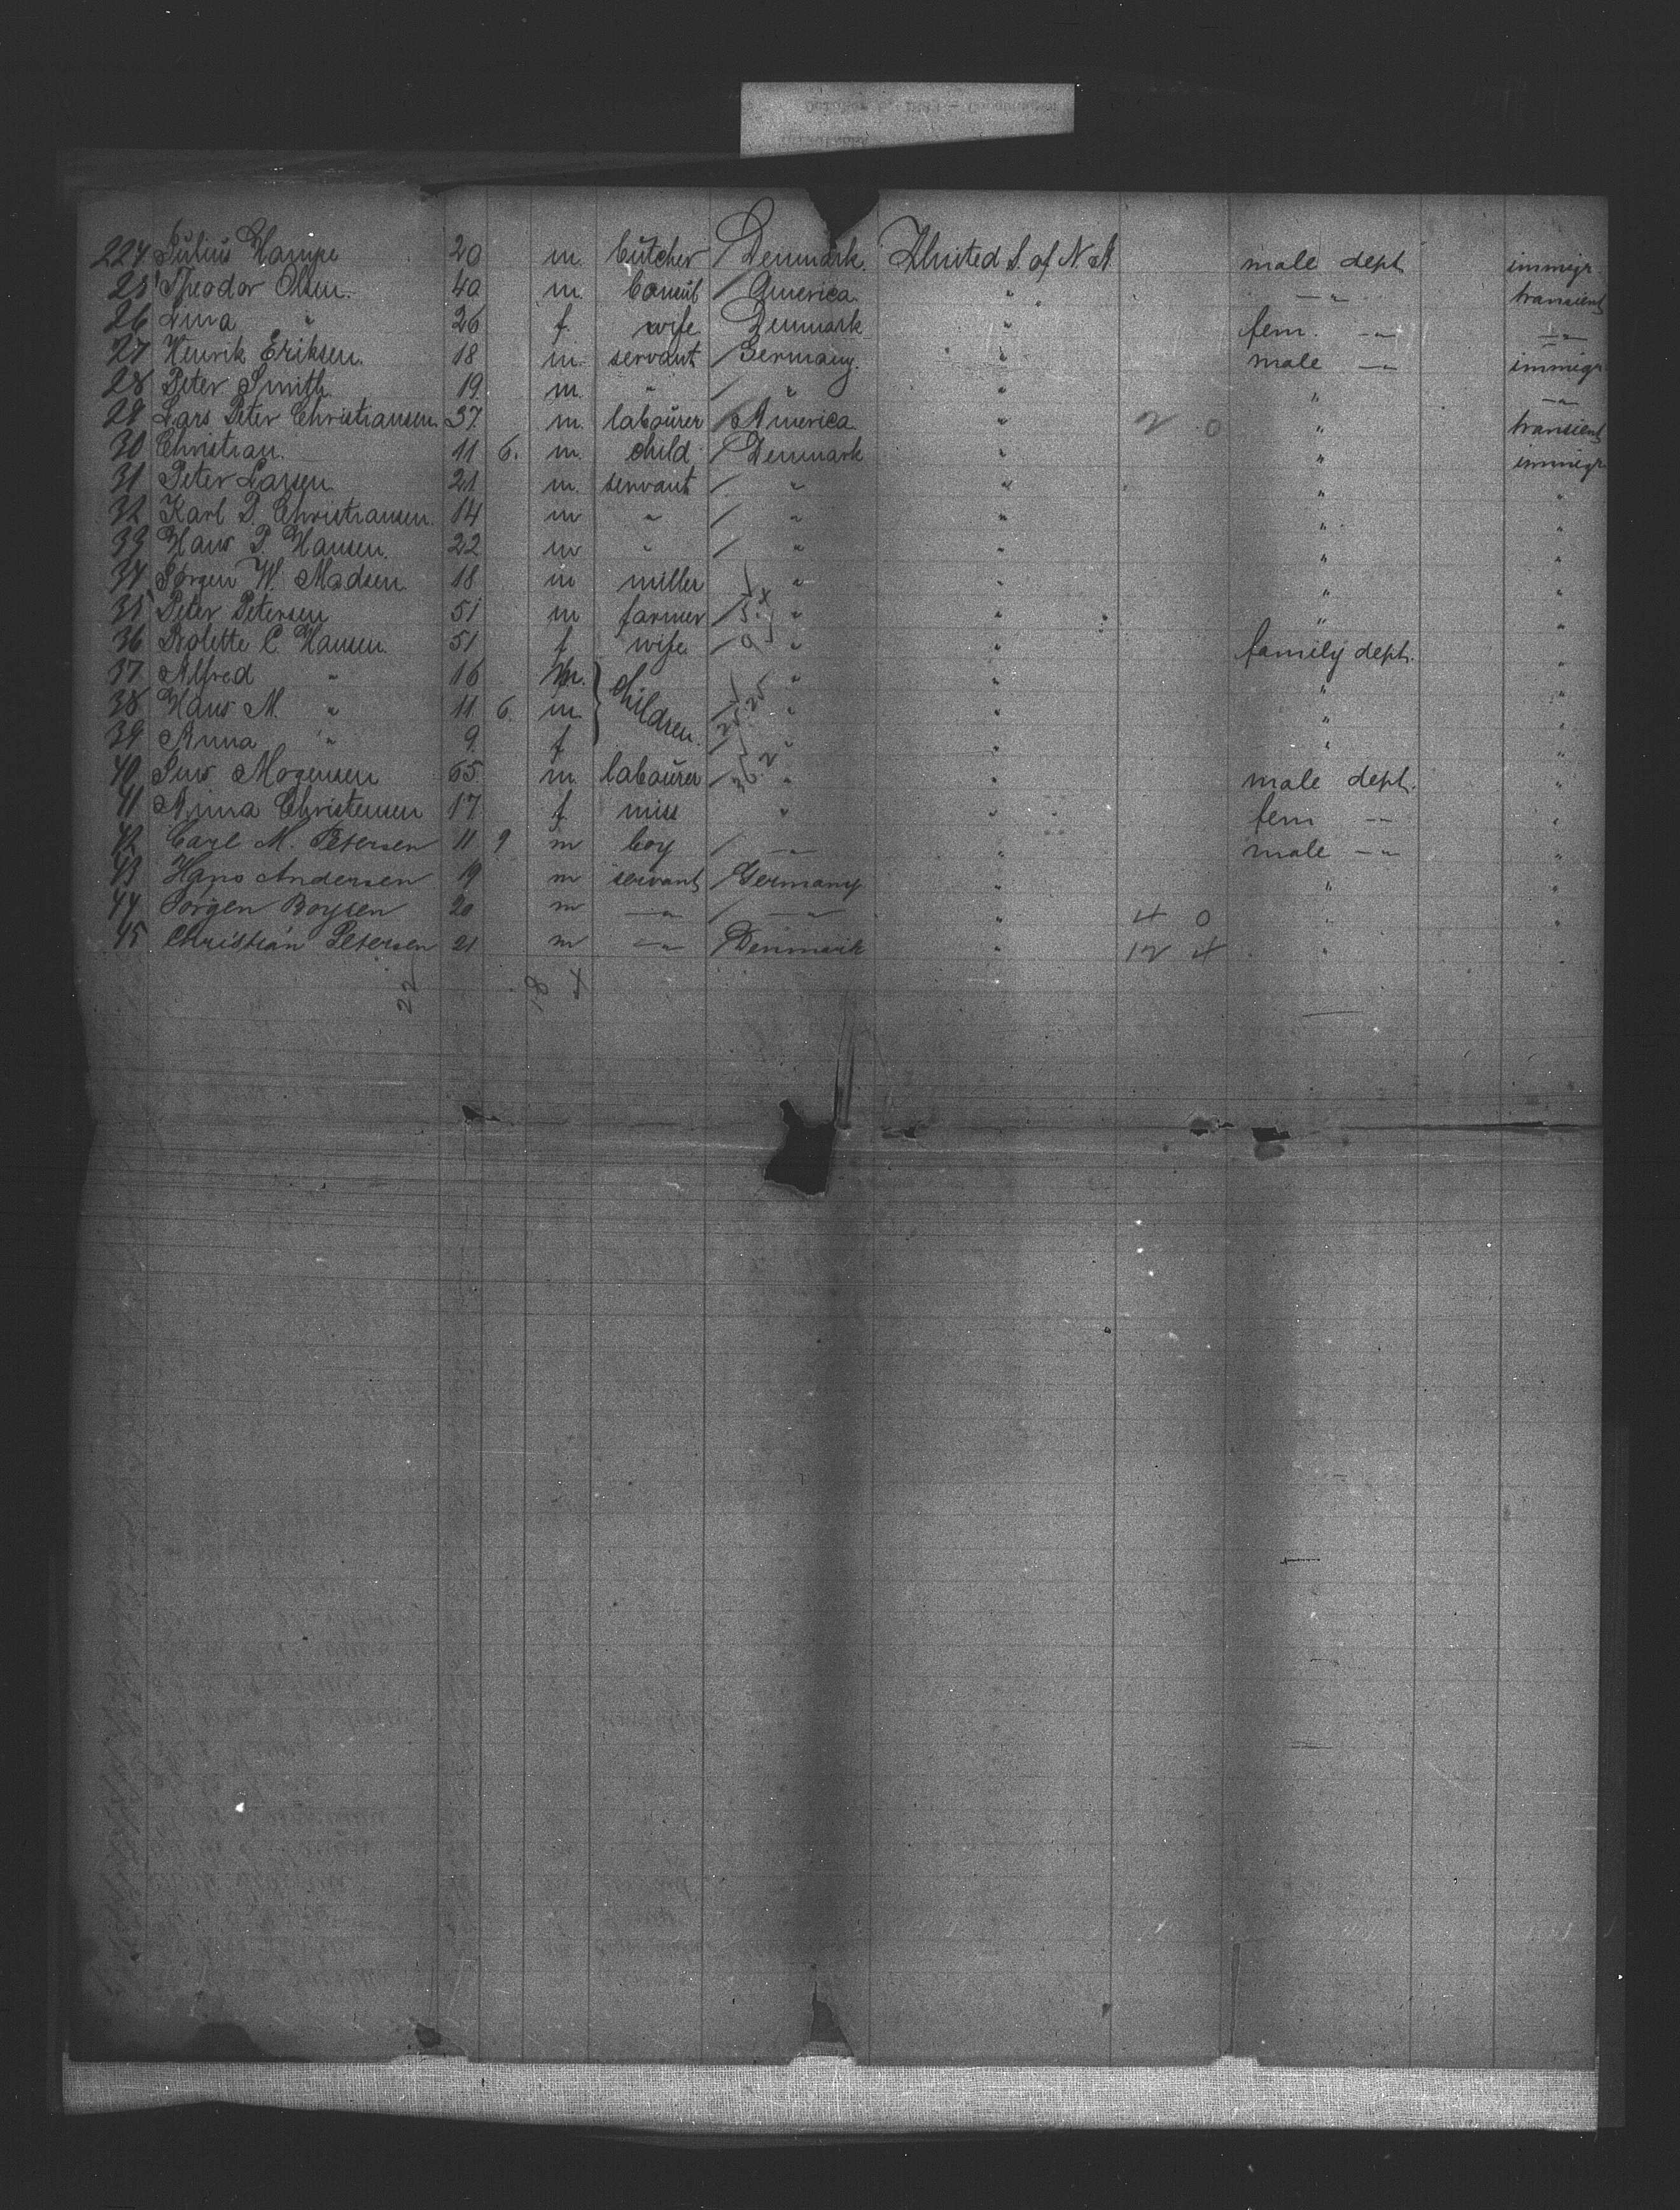 224 Julius Hampe 20 m. butcher / Denmark. United S. of N. A male dept immigr.
25 Theodor Olsen. 40 m. Consul / America " —"— transient
26 Lina " 26 f. wife Denmark " fem. —"— —"—
27 Henrik Eriksen. 18 m. servant / Germany. " male —"— immigr
28 Peter Smith 19 m. " / " " " —"—
29 Lars Peter Christiansen. 37. m. labourer / America " 2 0 " transient
30 Christian. 11 6. m. child / Denmark " " immigr
31 Peter Larsen 21 m. servant / " " " "
32 Karl P. Christiansen. 14 m " / " " " "
33 Hans P. Hansen. 22 m " / " " " "
34 Jørgen W. Madsen 18 m miller / " " " "
35 Peter Petersen 51 m farmer / " " " "
36 Bolette C. Hansen. 51 f wife / " " family dept. "
37 Alfred " 16 m. children. " " " "
38 Hans M. " 11 6. m. / " " " "
39 Anna " 9. f / " " " "
40 Jens Mogensen 65 m. labourer / " " male dept. "
41 Anna Christensen 17 f miss " " fem —"— "
42 Carl M. Petersen 11 9 m boy / —"— " male —"— "
43 Hans Andersen 19 m servant / Germany " " "
44 Jörgen Boysen 20 m —"— / —"— " 4 0 " "
45 Christian Petersen 21 m —"— / Denmark " 12 4 " "
22 18 4